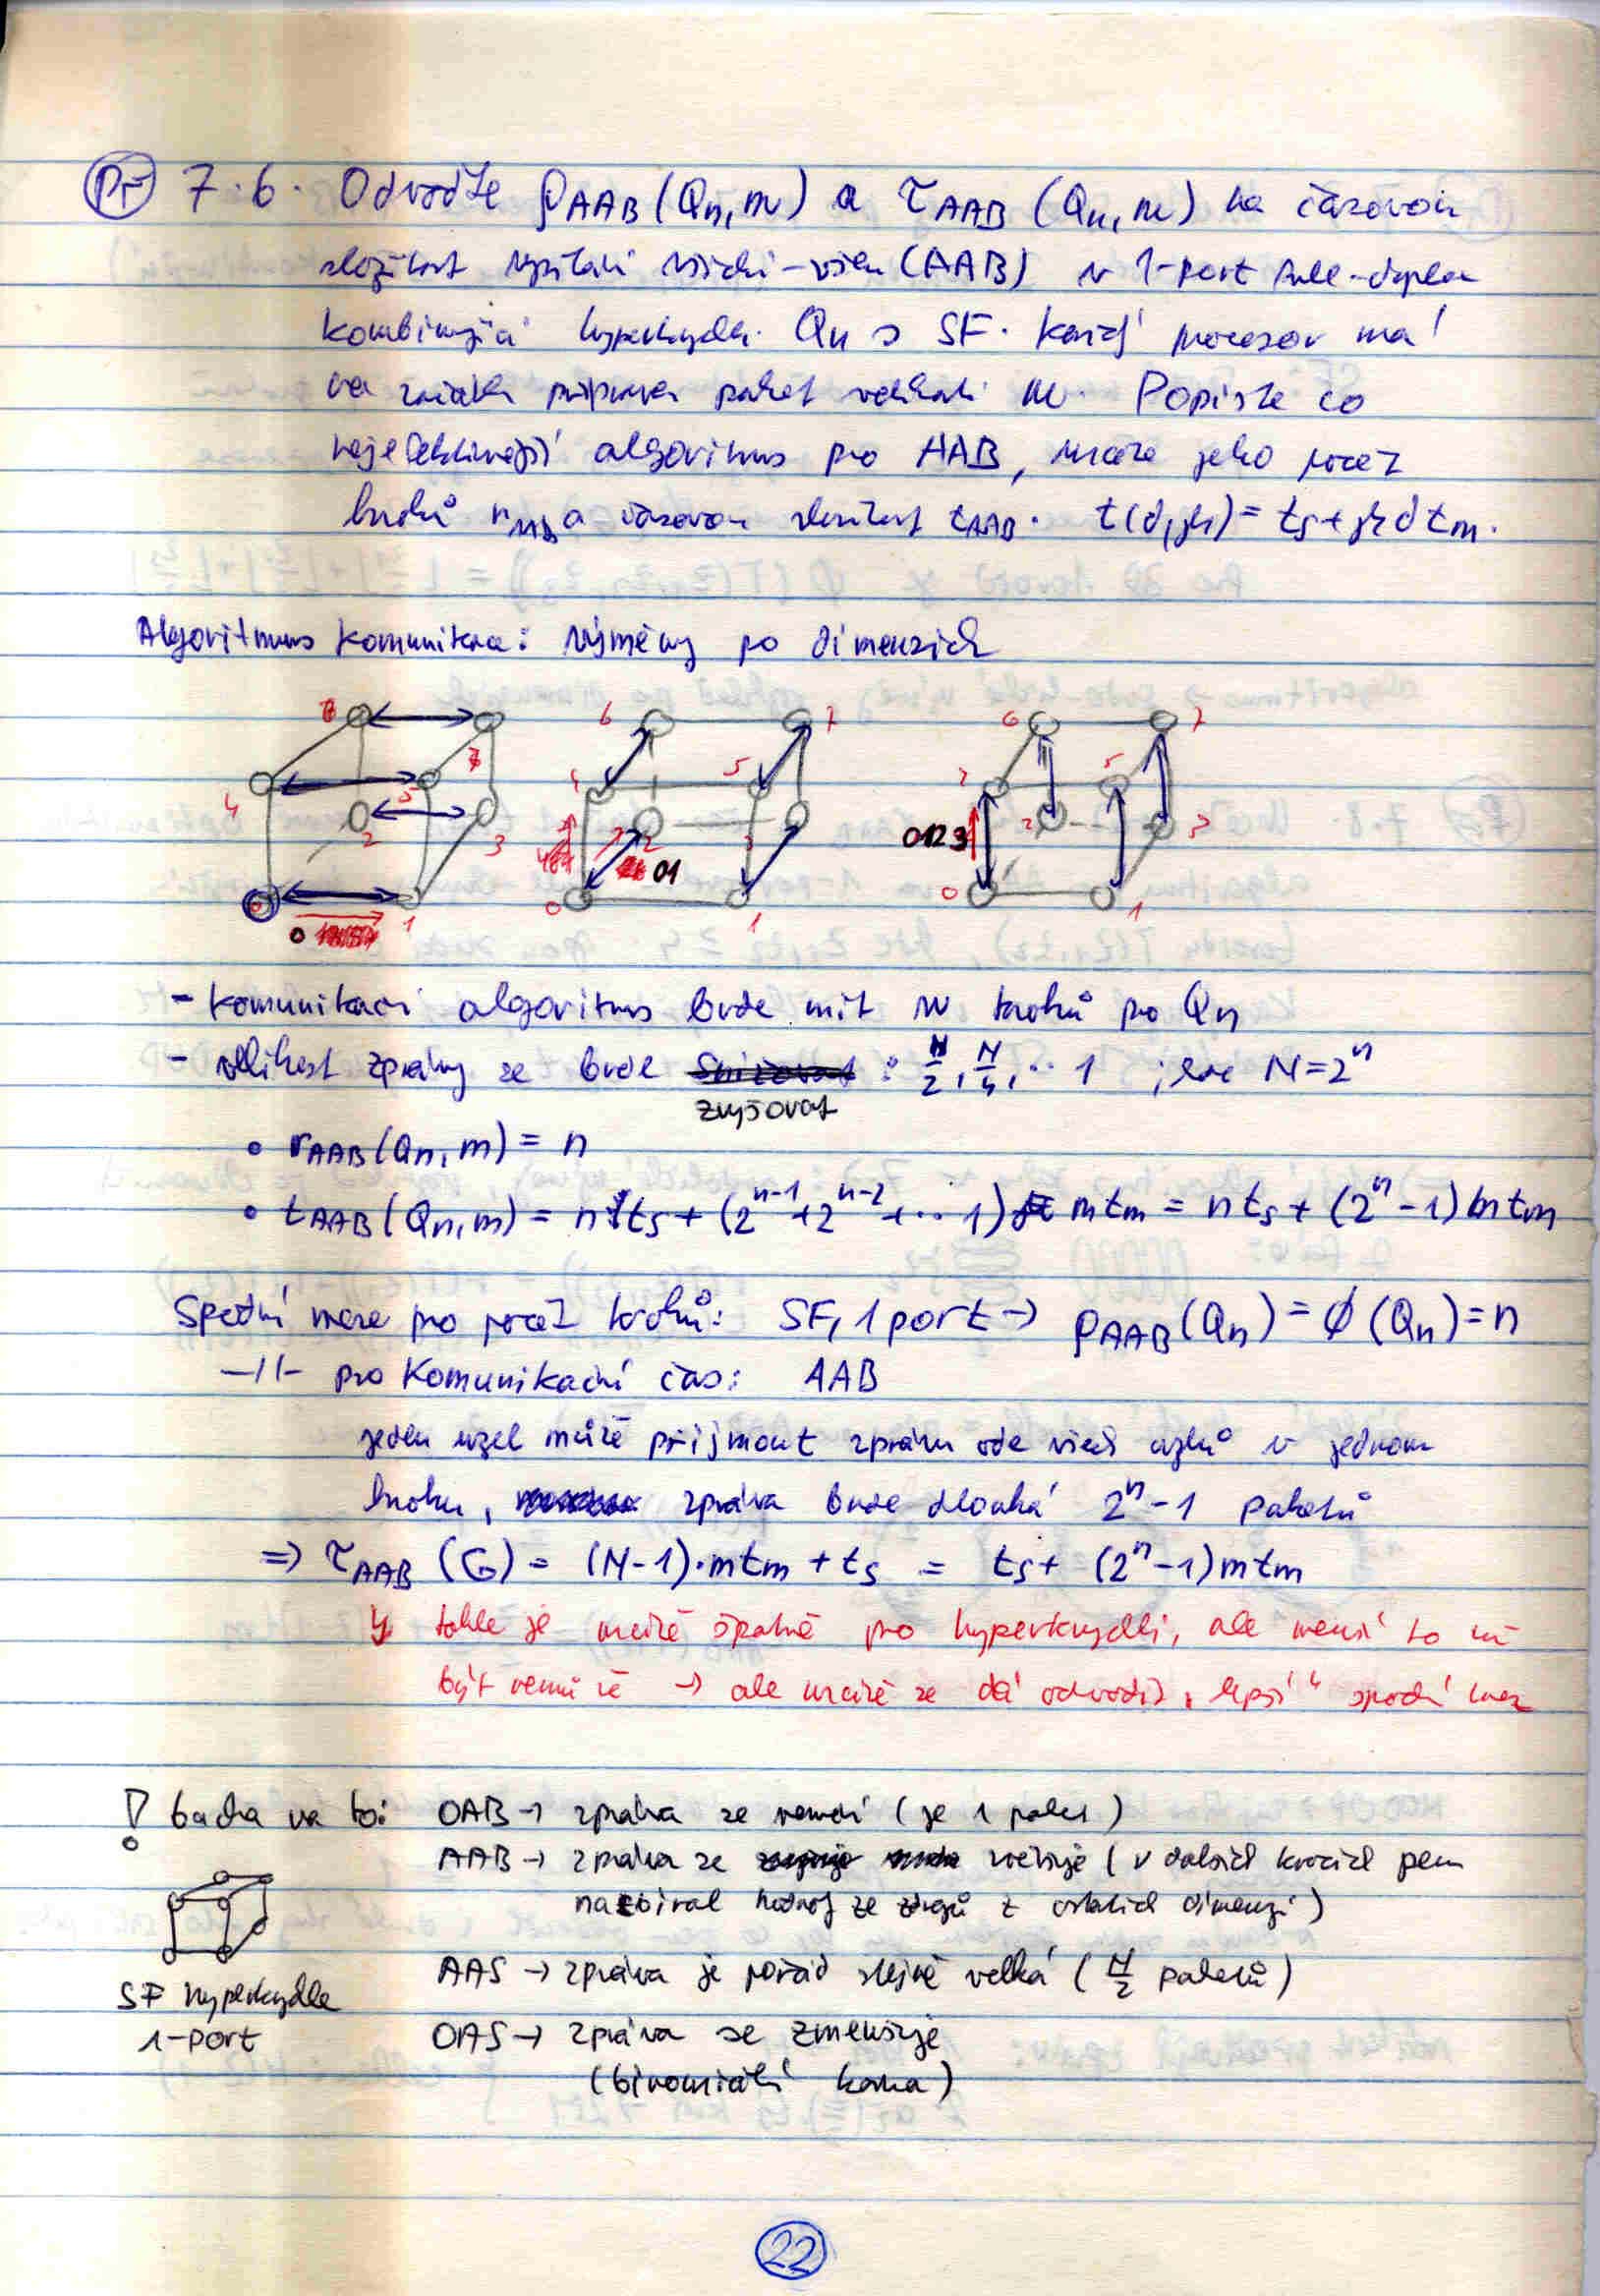 Př 7.6. Odvoďte ρAAB(Qn,m) a τAAB(Qn,m) na časovou
složitost vysílání všichni-všem (AAB) v 1-port full-duplex
kombinující hyperkrychli Qn s SF. Každý procesor má
na začátku připraven paket velikosti m. Popište co
nejefektivnější algoritmus pro AAB, určete jeho počet
kroků rAAB a časovou složitost tAAB. t(d,μ) = ts + μ d tm.
Algoritmus komunikace: výměny po dimenzích
6 7 6 7
4 5 4 5 7 5
2 3 2 3 2 3
0 1 0 1 0 1
0 01 0123
- komunikační algoritmus bude mít n kroků pro Qn
- velikost zprávy se bude snižovat : N/2, N/4, .. 1 ; kde N=2^n
zvyšovat
• rAAB(Qn,m) = n
• tAAB(Qn,m) = n ts + (2^n-1 + 2^n-2 + ... 1) m tm = n ts + (2^n - 1) m tm
Spodní meze pro počet kroků: SF, 1 port → ρAAB(Qn) = ø(Qn) = n
-//- pro komunikační čas: AAB
jeden uzel může přijmout zprávu ode všech uzlů v jednom
kroku, zpráva bude dlouhá 2^n - 1 paketů
=> τAAB (G) = (N-1)·mtm + ts = ts + (2^n - 1) m tm
↳ tohle je určitě špatně pro hyperkrychli, ale menší to už
být nemůže → ale určitě se dá odvodit „lepší" spodní mez
! bacha na to: OAB → zpráva se nemění (je 1 paket)
AAB → zpráva se zvětšuje (v dalších krocích jsem
nasbíral hodnoty ze zdrojů z ostatních dimenzí)
AAS → zpráva je pořád stejně velká (N/2 paketů)
SF hyperkrychle
1-port
OAS → zpráva se zmenšuje
(binomiální kostra)
22